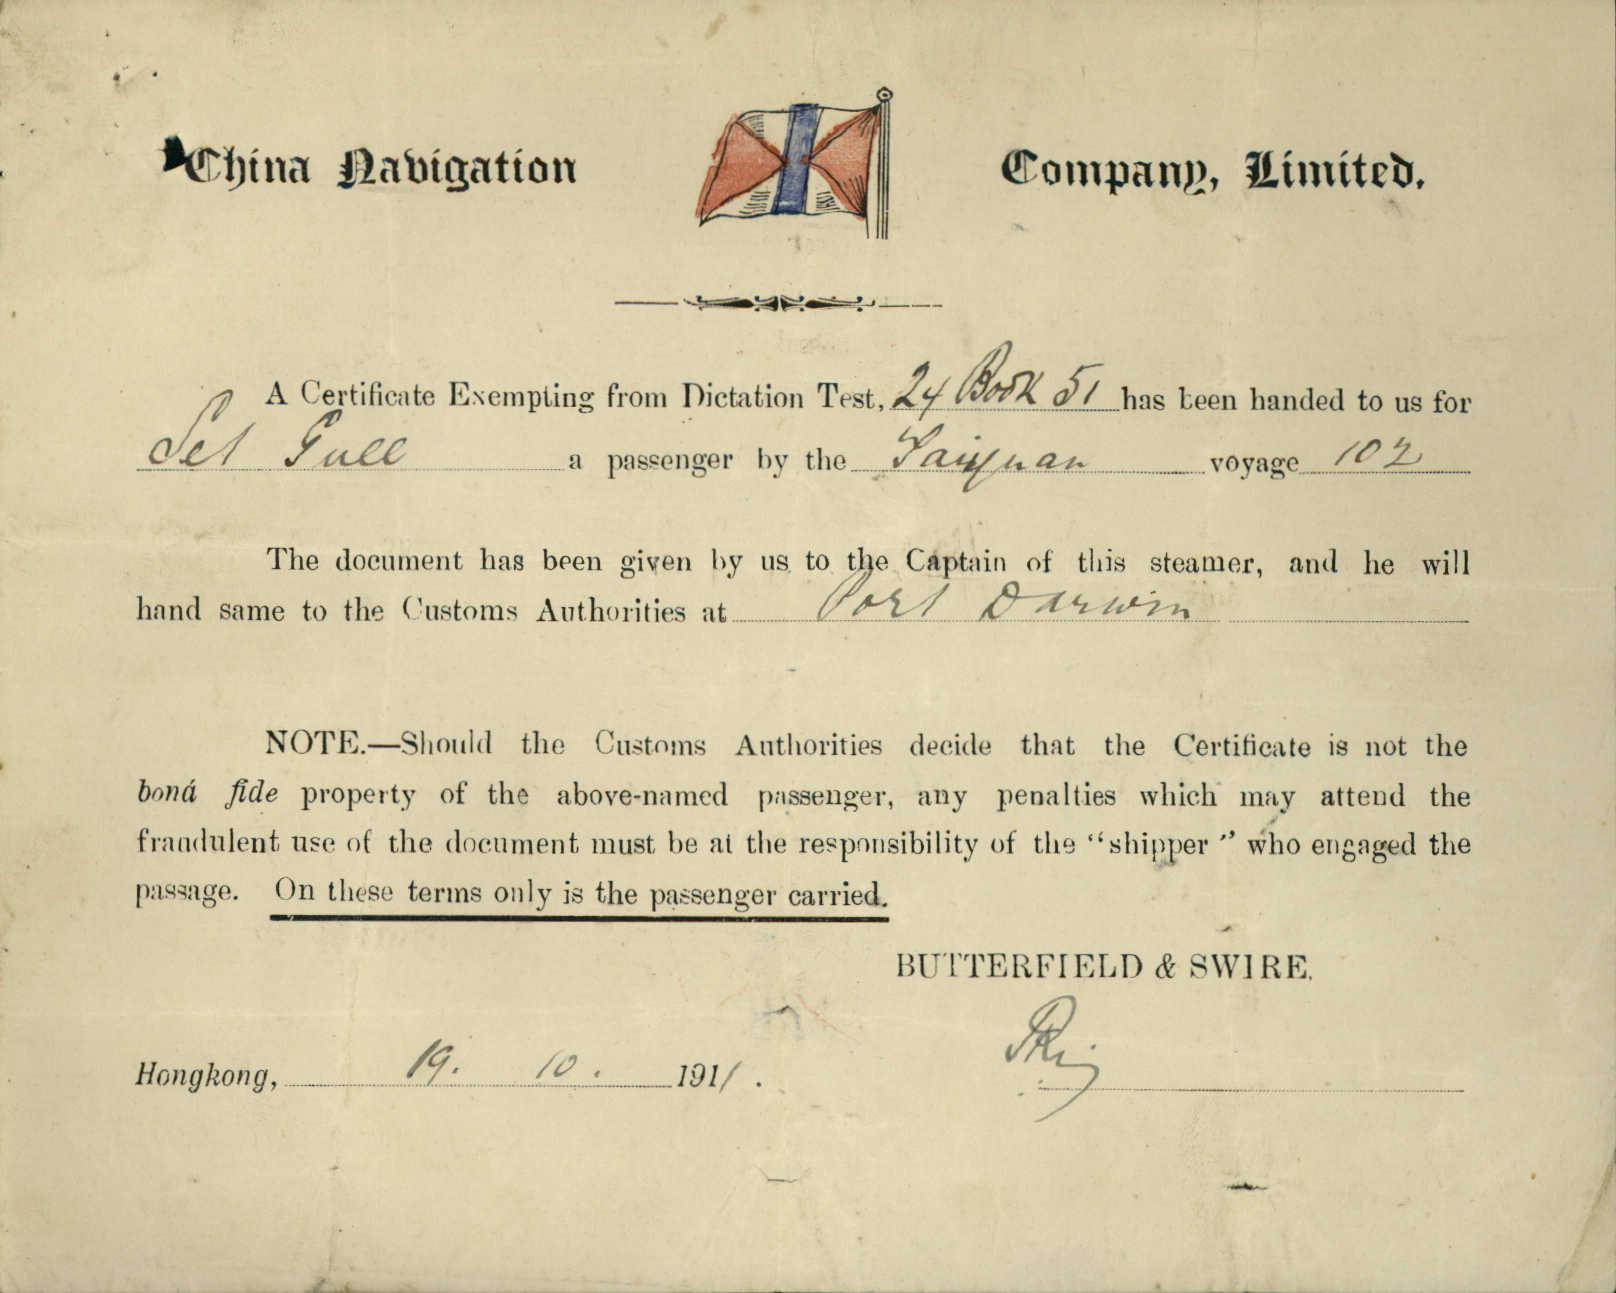 China Navigation Company, Limited.
A Certificate Exempting from Dictation Test, 24 Book 51 has been handed to us for
Set Gull a passenger by the Taiyuan voyage 102
The document has been given by us to the Captain of this steamer, and he will
hand same to the Customs Authorities at Port Darwin
NOTE.—Should the Customs Authorities decide that the Certificate is not the
boná fide property of the above-named passenger, any penalties which may attend the
fraudulent use of the document must be at the responsibility of the “shipper” who engaged the
passage. On these terms only is the passenger carried.
BUTTERFIELD & SWIRE.
Hongkong, 19. 10. 1911.